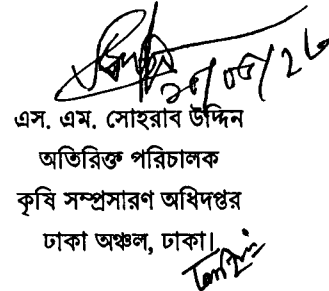 এস. এম. সোহরাব উদ্দিন
অতিরিক্ত পরিচালক
কৃষি সম্প্রসারণ অধিদপ্তর
ঢাকা অঞ্চল, ঢাকা।